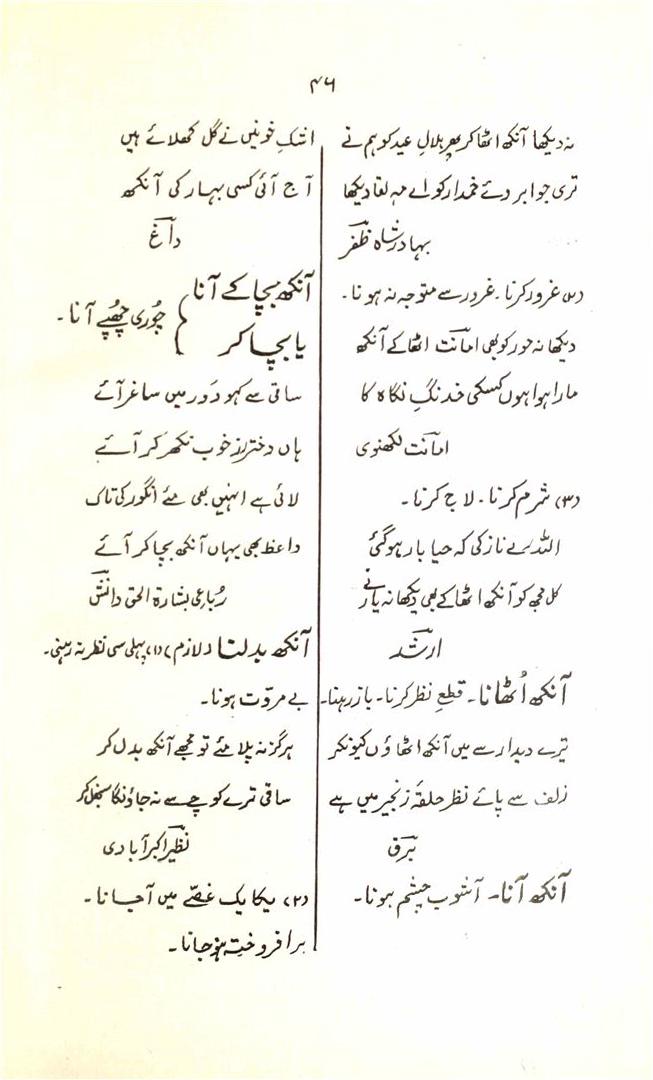 ۴۶
نہ دیکھا آنکھ اٹھا کر پھر ہلالِ عید کو ہم نے
تری جو ابروئے خمدار کو اے مہ لقا دیکھا
بہادر شاہ ظفر
(۲) غرور کرنا۔ غرور سے متوجہ نہ ہونا۔
دیکھا نہ حور کو بھی امانت اٹھا کے آنکھ
مارا ہوا ہوں کسکی خدنگِ نگاہ کا
امانت لکھنوی
(۳) شرم کرنا۔ لاج کرنا۔
اللہ رے نازکی کہ حیا بار ہو گئی
کل مجھ کو آنکھ اٹھا کے بھی دیکھا نہ یار نے
ارشد
آنکھ اُٹھانا۔ قطع نظر کرنا۔ باز رہنا۔
تیرے دیدار سے میں آنکھ اٹھاؤں کیونکر
زلف سے پائے نظر حلقۂ زنجیر میں ہے
برق
آنکھ آنا۔ آشوب چشم ہونا۔
اشکِ خونیں نے گل کھلائے ہیں
آج آئی کسی بہار کی آنکھ
داغ
آنکھ بچا کے آنا
یا بچا کر
چوری چھپے آنا۔
ساقی سے کہو دَور میں ساغر آئے
ہاں دختر رز خوب نکھر کر آئے
لائی ہے انہیں بھی مئے انگور کی تاک
واعظ بھی یہاں آنکھ بچا کر آئے
رُباعی بشارۃ الحق دانش
آنکھ بدلنا (لازم) (۱) پہلی سی نظر نہ رہنی۔
بے مروّت ہونا۔
ہر گز نہ پلا مئے تو مجھے آنکھ بدل کر
ساقی ترے کوچے سے نہ جاؤنگا سنبھل کر
نظیر اکبر آبادی
(۲) یکا یک غصّے میں آجانا۔
برافروختہ ہو جانا۔